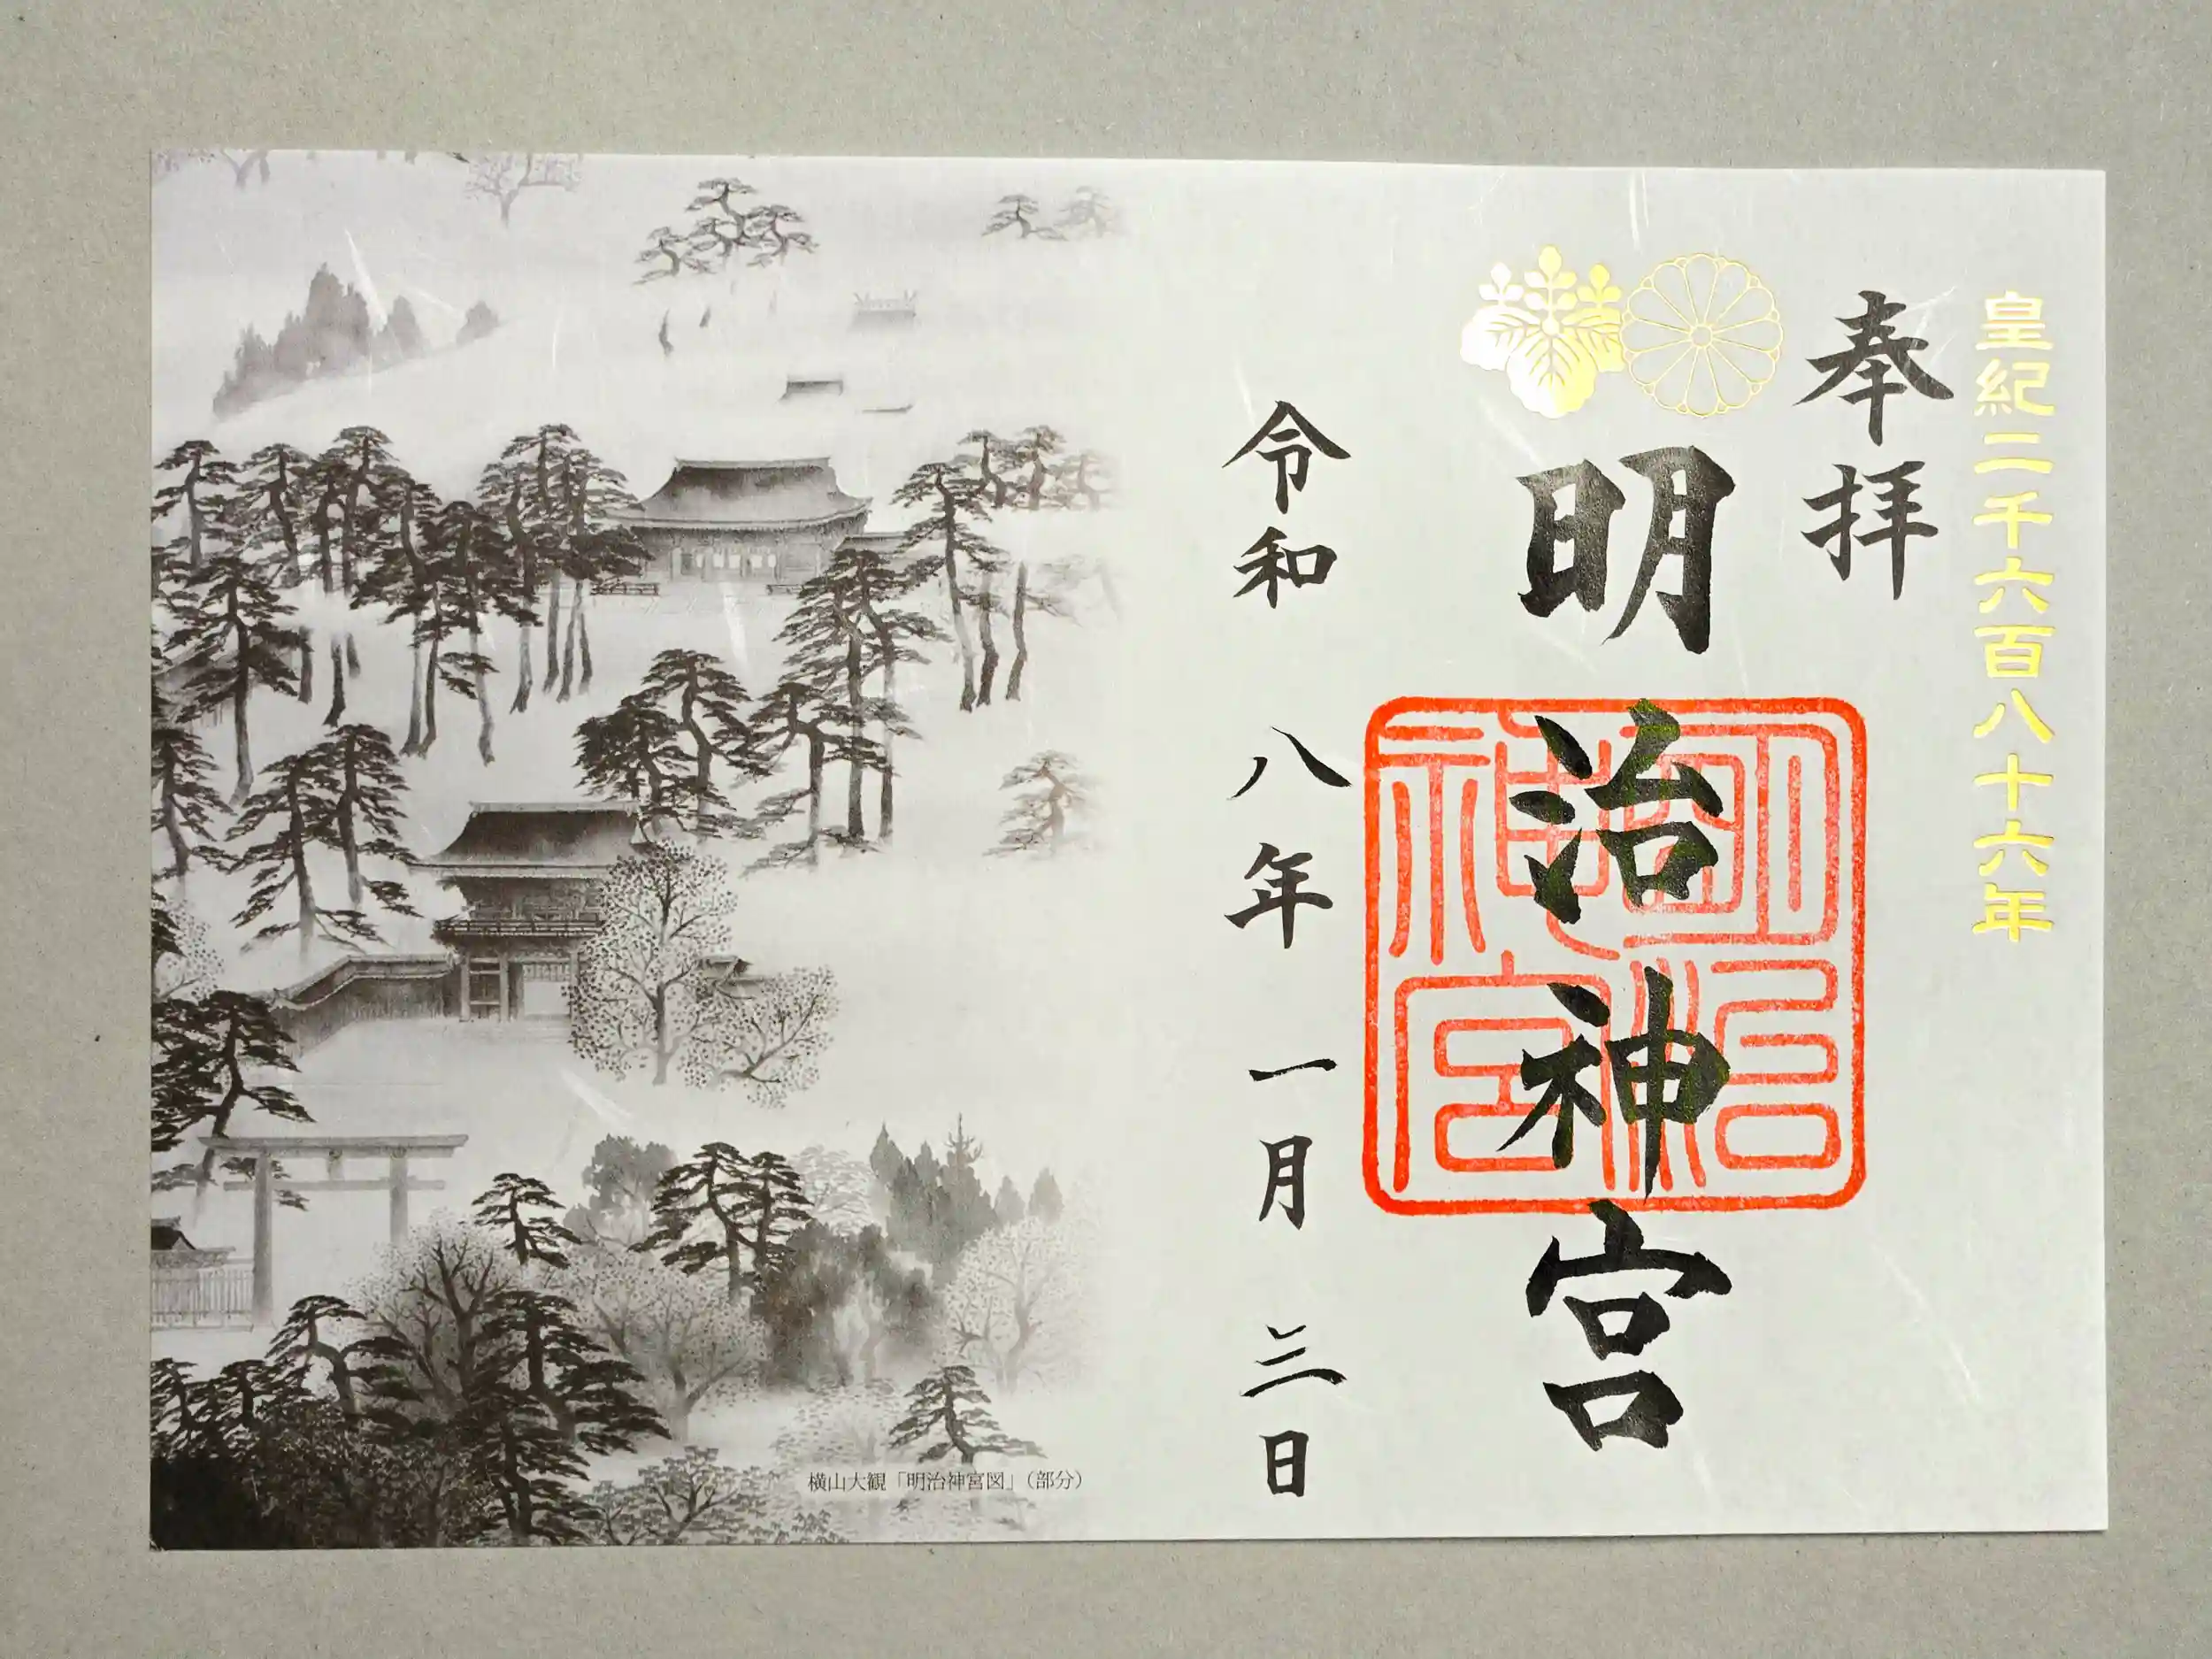 皇紀二千六百八十六年
奉拝
明治神宮
明治神宮
令和八年一月三日
横山大観「明治神宮図」（部分）